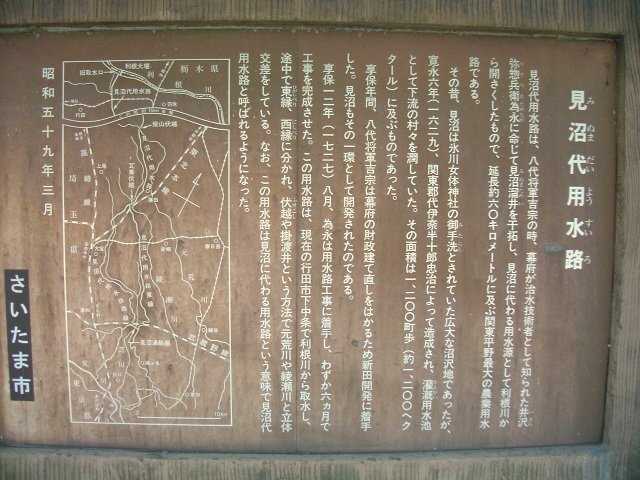 見沼代用水路
み ぬま だい よう すい ろ
見沼代用水路は、八代将軍吉宗の時、幕府が治水技術者として知られた井沢
弥惣兵衛為永に命じて見沼溜井を干拓し、見沼に代わる用水源として利根川か
ら開さくしたもので、延長約六〇キロメートルに及ぶ関東平野最大の農業用水
路である。
その昔、見沼は氷川女体神社の御手洗とされていた広大な沼沢地であったが、
寛永六年(一六二九)、関東郡代伊奈半十郎忠治によって造成され、灌漑用水池
として下流の村々を潤していた。その面積は一、二〇〇町歩(約一、二〇〇ヘク
タール)に及ぶものであった。
享保年間、八代将軍吉宗は幕府の財政建て直しをはかるため新田開発に着手
した。見沼もその一環として開発されたのである。
享保一二年(一七二七)八月、為永は用水路工事に着手し、わずか六ヵ月で
工事を完成させた。この用水路は、現在の行田市下中条で利根川から取水し、
途中で東縁、西縁に分かれ、伏越や掛渡井という方法で元荒川や綾瀬川と立体
交差をしている。なお、この用水路は見沼に代わる用水路という意味で見沼代
用水路と呼ばれるようになった。
利根大堰
栃木県
見沼代用水路
利根川
昭和五十九年三月
さいたま市